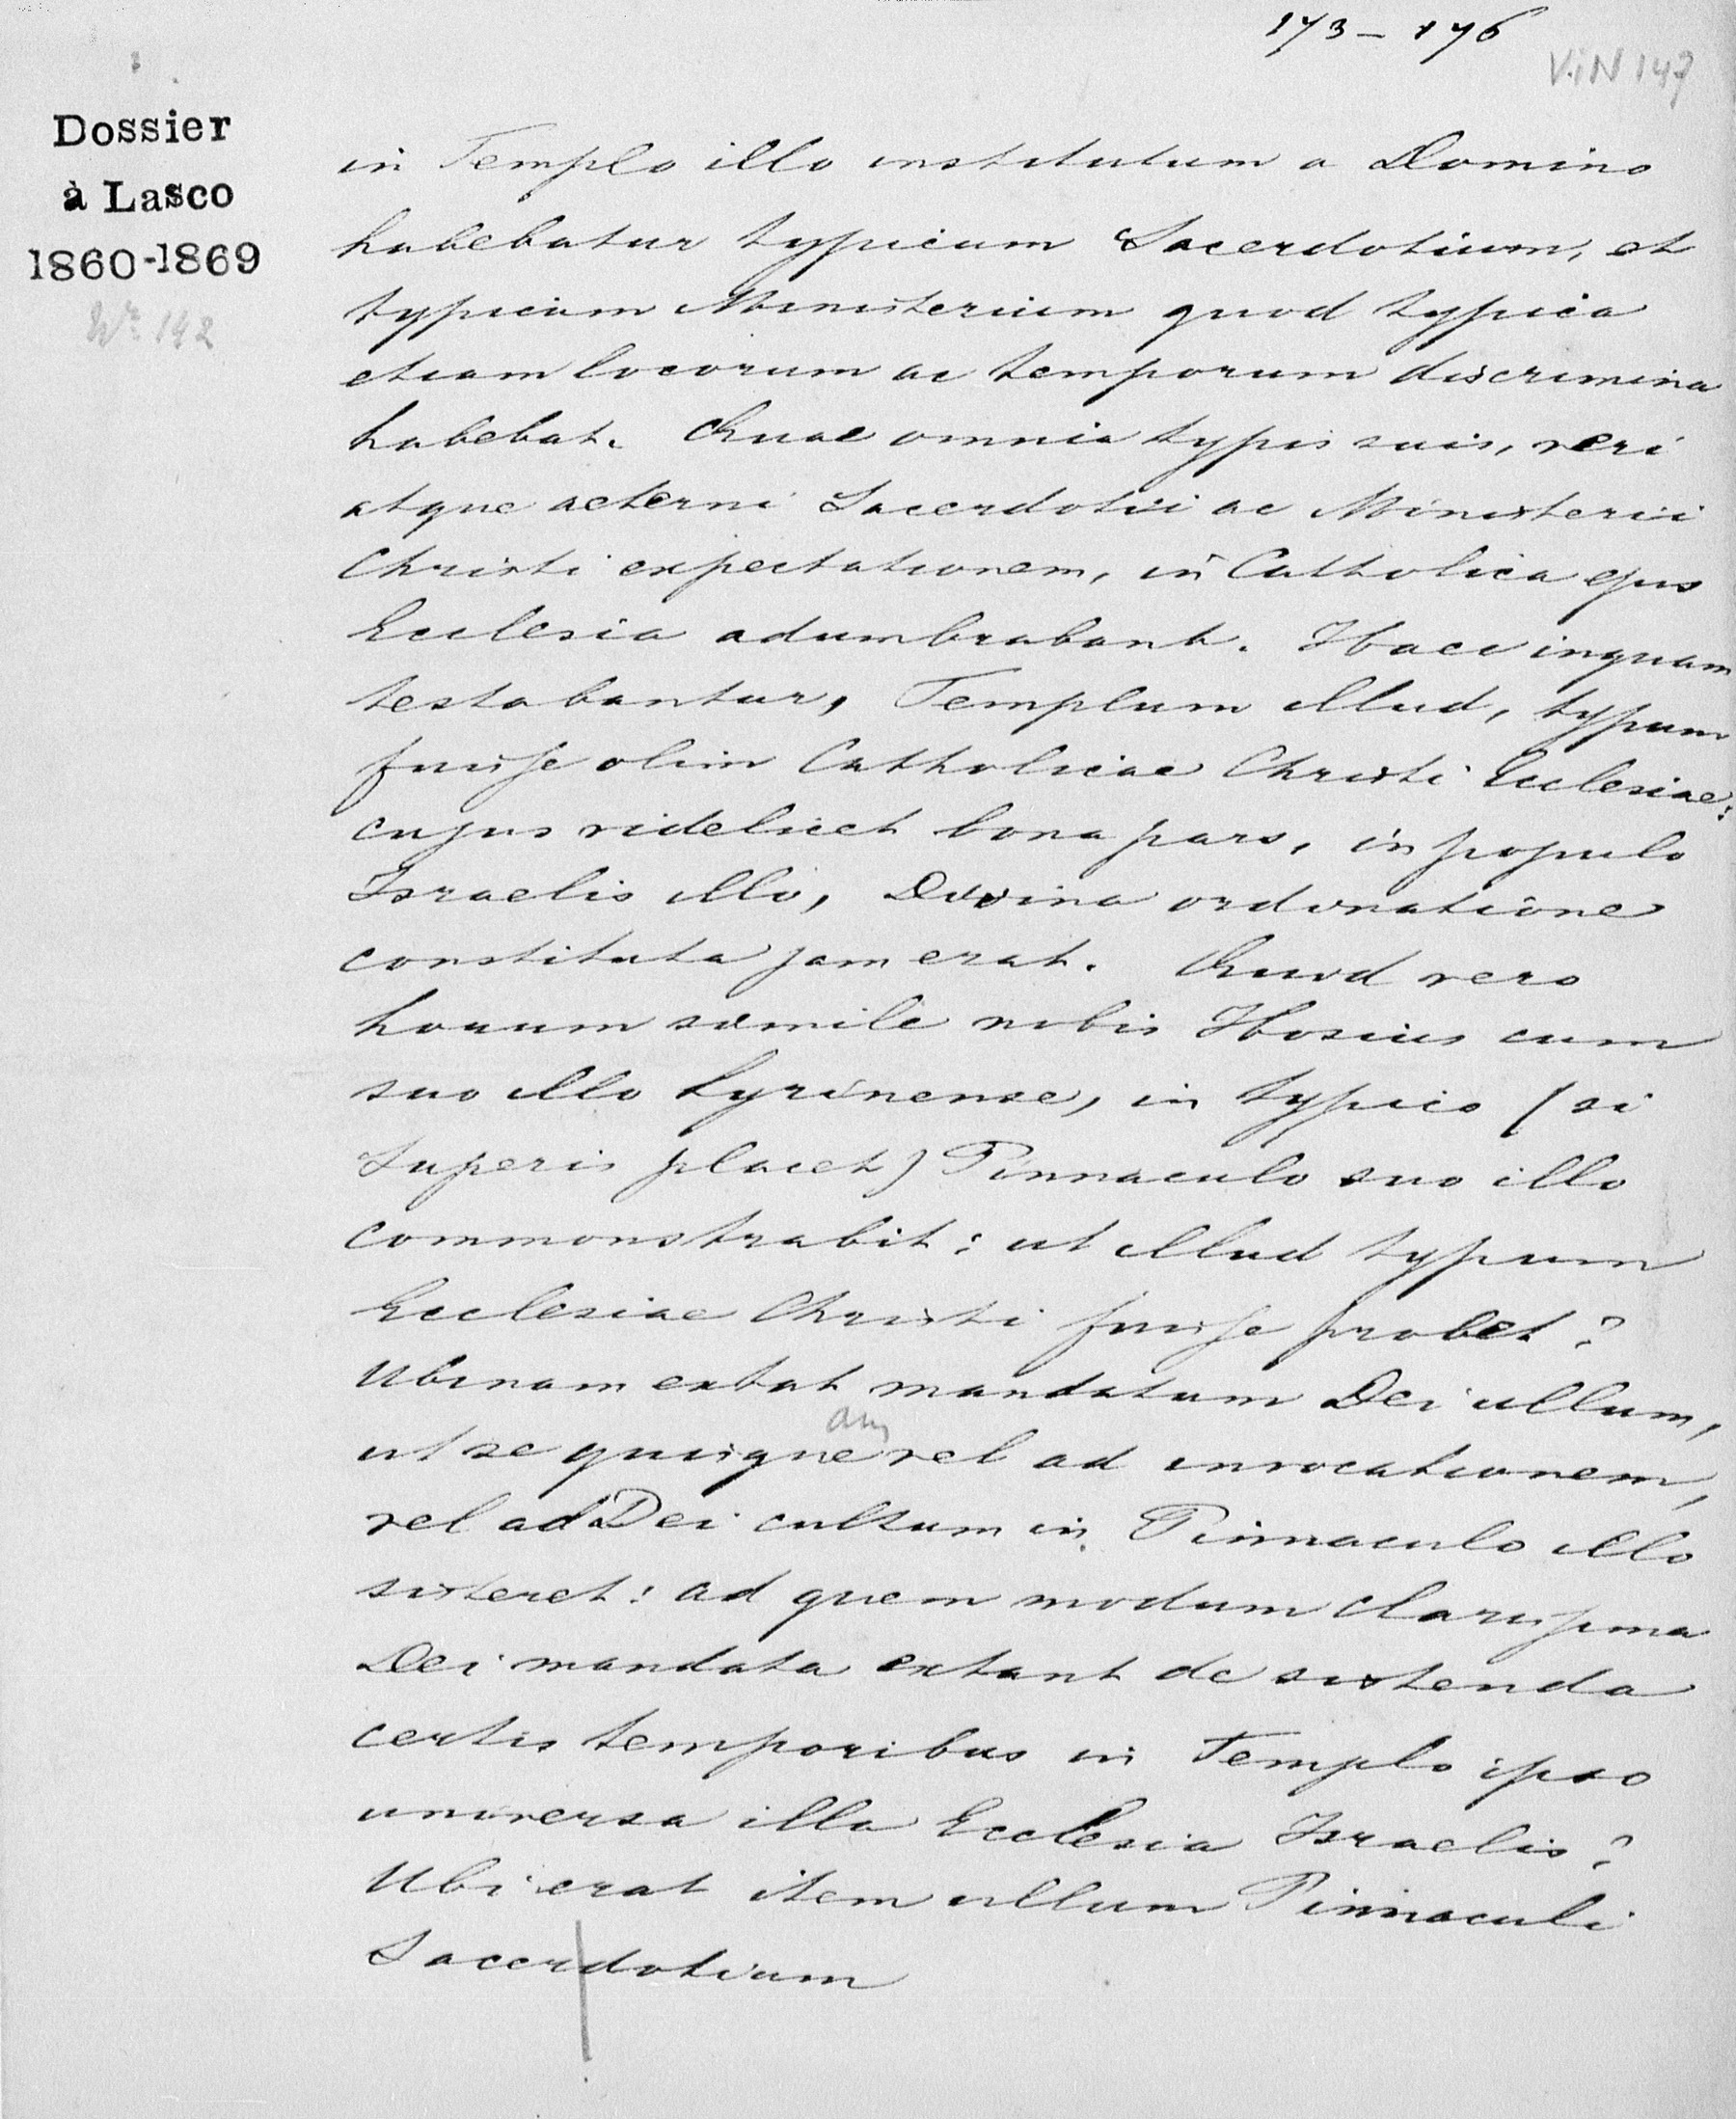 173 – 176
ViN 147
Dossier
à Lasco
1860-1869
Nr. 142
in Templo illo institutum a Domino
habebatur typicum Sacerdotium, et
typicum Ministerium quod typica
etiam locorum ac temporum discrimina
habebat. Quae omnia typis suis, veri
atque aeterni Sacerdotii ac Ministerii
Christi expectationem, in Catholica ejus
Ecclesia adumbrabant. Haec inquam
testabantur, Templum illud, typum
fuisse olim Catholicae Christi Ecclesiae:
cujus videlicet bona pars, in populo
Israelis illo, Divina ordinatione
constituta jam erat. Quod vero
horum simile nobis Hosius cum
suo illo Lyrinense, in typico (si
Superis placet) Pinnaculo suo illo
commonstrabit: ut illud typum
Ecclesiae Christi fuisse probet?
Ubinam extat mandatum Dei ullum,
ut se quisque vel ad invocationem,
vel ad Dei cultum in Pinnaculo illo
sisteret: ad quem modum clarissima
Dei mandata extant de sistenda
certis temporibus in Templo ipso
universa illa Ecclesia Israelis?
Ubi erat item ullum Pinnaculi
Sacerdotium